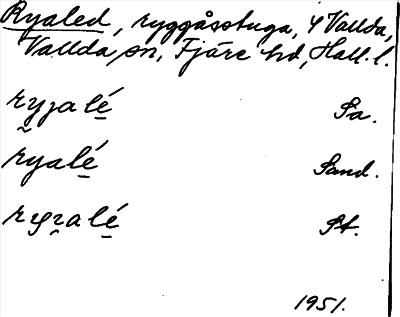 Ryaled, ryggåsstuga, 4 Vallda,
Vallda sn, Fjäre hd, Hall. l.
ryjalé Sa.
ryalé Sand.
ryralé St.
1951.